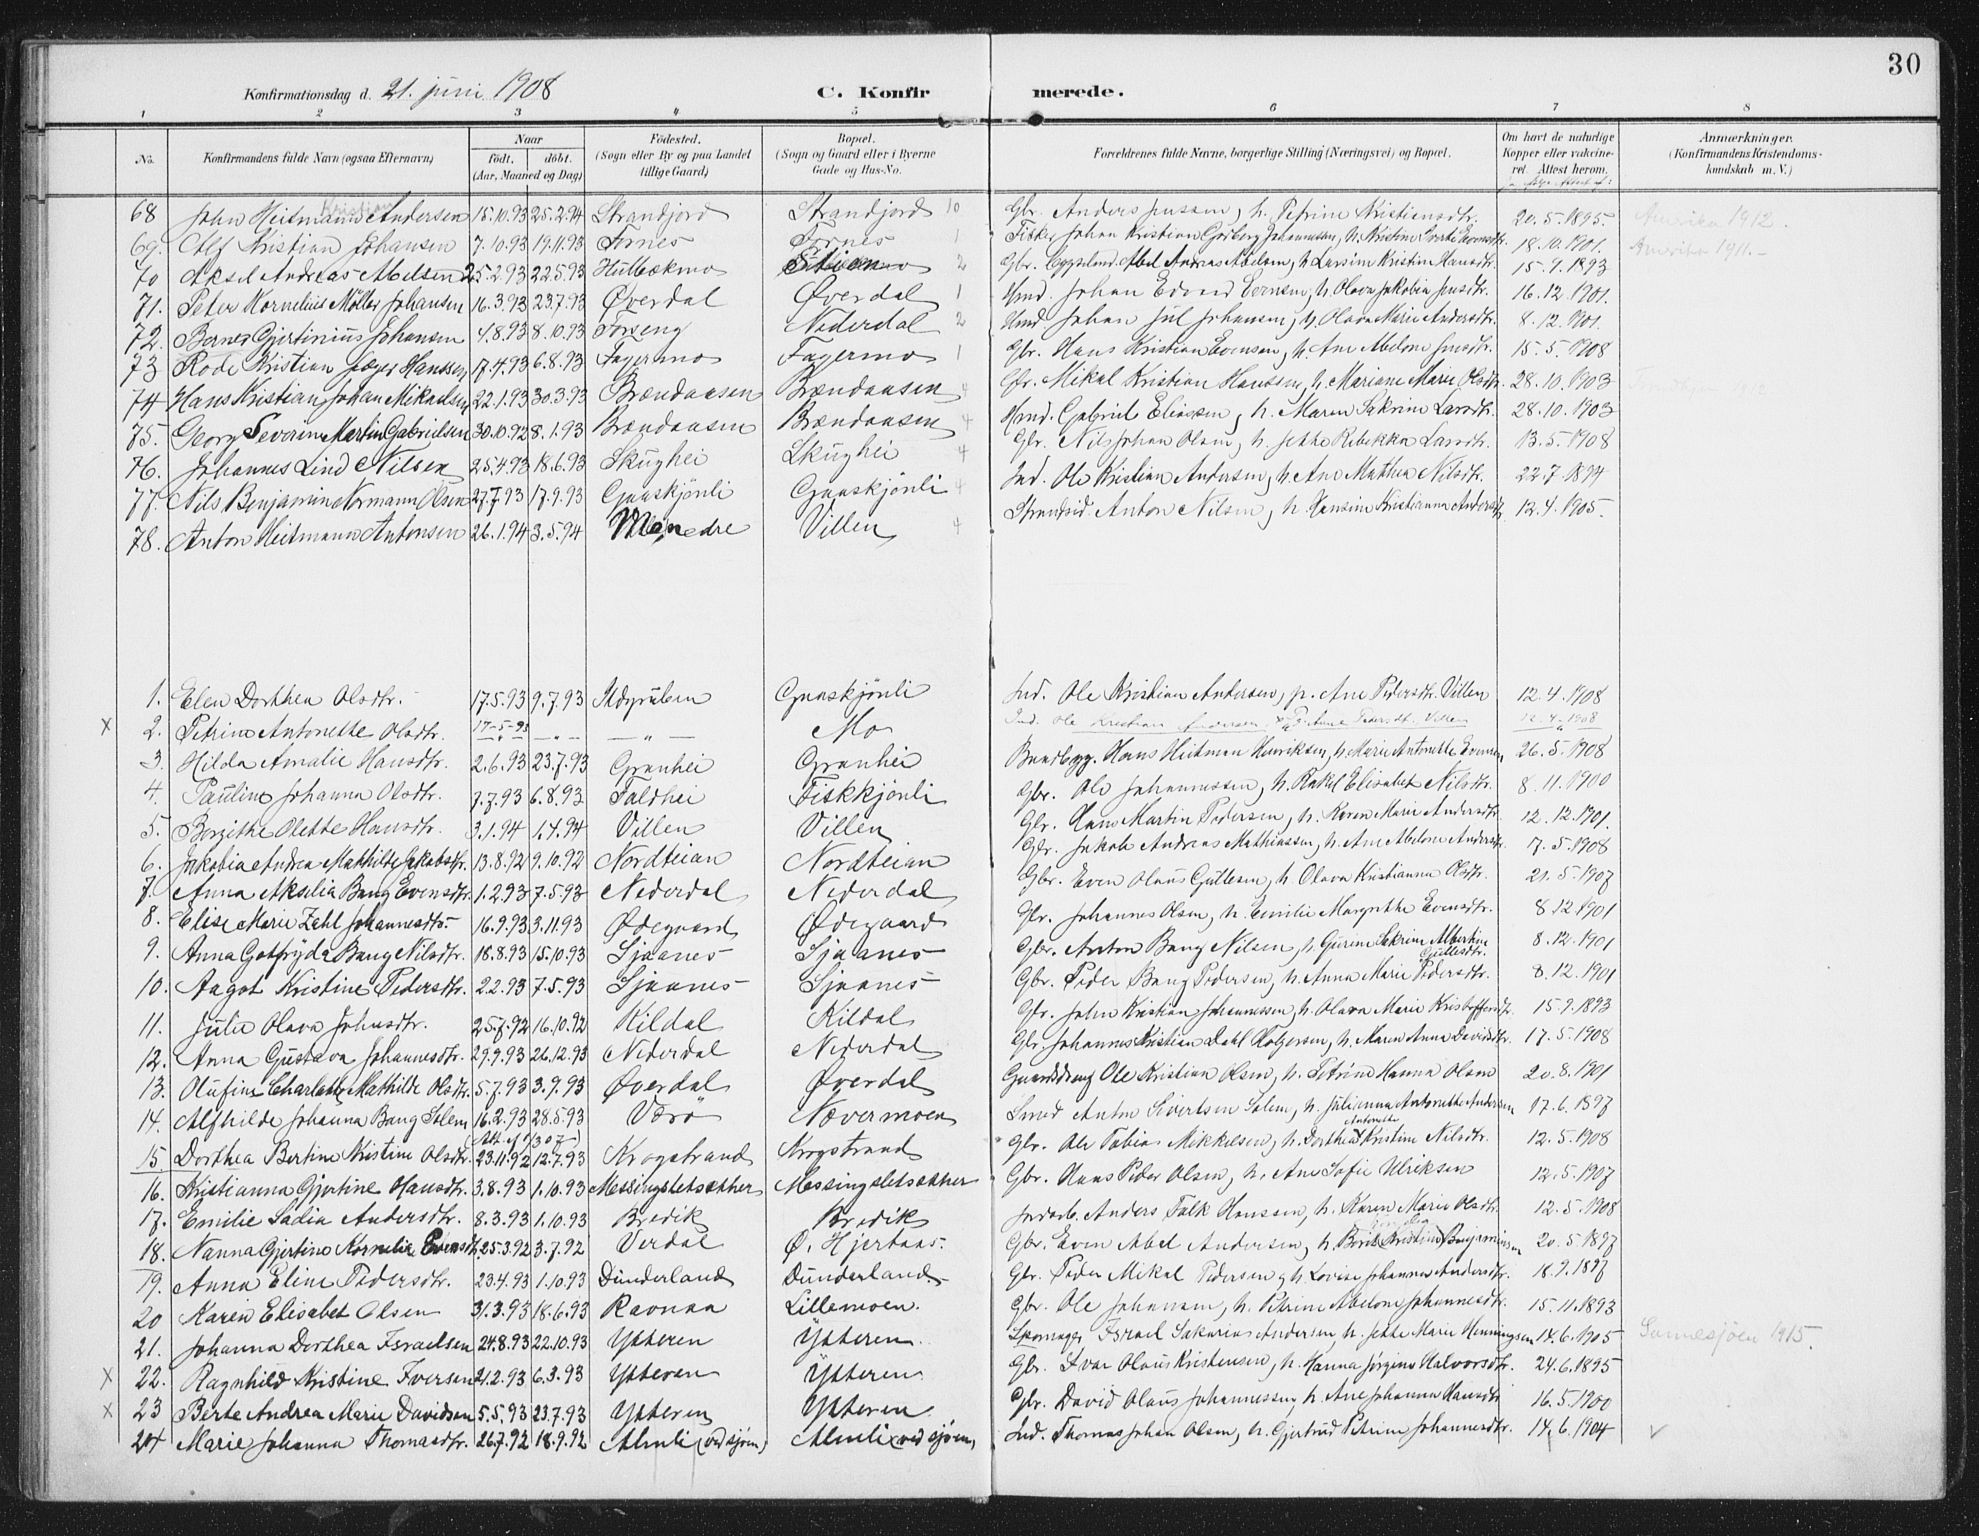 30
Konfirmationsdag d. 21. juni 1908
C. Konfirmerede.
1 2 3 4 5 6 7 8
No. Konfirmandens fulde Navn (ogsaa Efternavn) Naar födt. döbt. (Aar, Maaned og Dag) Födested. (Sogn eller By og paa Landet tillige Gaard) Bopæl. (Sogn og Gaard eller i Byerne Gade og Hus-No. Forældrenes fulde Navne, borgerlige Stilling (Næringsvei) og Bopæl. Om havt de naturlige Kopper eller vakcineret. Attest herom. Anmærkninger. (Konfirmandens Kristendomskundskab m. V.)
68 John Heitmann Kristian Andersen 15.10.93 25.2.94 Strandjord Strandjord 10 Gbr. Anders Jensen, h. Petrine Kristensdtr. 20.5.1895. Amerika 1912.
69. Alf Kristian Johansen 7.10.93 19.11.93 Fornes Fornes 1 Fisker Johan Kristian Johannesen, h. Kristine 18.10.1901. Amerika 1911.
70 Aksel Andreas Abelsen 25.2.93 22.5.93 Hulbækmo 2 Gbr. Abel Andreas Abelsen, h. Larsine Kristine Hansdtr. 15.9.1893
71. Peter Kornelius Möller Johansen 16.3.93 23.7.93 Överdal Överdal 1 Hmd. Johan Edvard Evensen, h. Olava Jakobia Jensdtr. 16.12.1901.
72. Berner Gjertinius Johansen 4.8.93 8.10.93 Forseng Nederdal 2 Hmd. Johan Jul Johansen, h. Olava Marie Andersdtr. 8.12.1901.
73 Rode Kristian Jæger Hanssen 17.4.93 6.8.93 Fagermo Fagermo 1 Gbr. Hans Kristian Evensen, h. Ane Abelone Jensdtr. 15.5.1908
74 Hans Kristian Johan Mikaelsen 22.1.93 30.3.93 Brændaasen Brændaasen 4 Gbr. Mikal Kristian Hansen, h. Mariane Marie Olsdtr. 28.10.1903
75. Georg Severin Martin Gabrielsen 30.10.92 8.1.93 Brændaasen Brændaasen 4 Hmd. Gabriel Eliassen, h. Maren Sakrine Larsdtr. 28.10.1903
76. Johannes Lind Nilsen 25.4.93 18.6.93 Skughei Skughei 4 Gbr. Nils Johan Olsen, h. Jethe Rebekka Larsdtr. 13.5.1908
77. Nils Benjamin Normann Olsen 27.7.93 17.9.93 Graaskjönli Graaskjönli 4 Ind. Ole Kristian Andersen, h. Ane Mathea Nilsdtr. 22.7.1894
78. Anton Heitmann Antonsen 26.1.94 3.5.94 Villen 4 Strandsid. Anton Nilsen, h. Hansine Kristianna Andersdtr. 12.4.1905.
1. Elen Dorthea Olsdtr. 17.5.93 9.7.93 Ildgruben Graaskjönli Ind. Ole Kristian Andersen, p. Ane Pedersdtr. Villen 12.4.1908
X 2. Petrine Antonette Olsdtr. 17-5-93 — " — — " — Mo Ind. Ole Kristian Andersen, p. Ane Pedersdtr. Villen 12.4.1908
3. Hilda Amalie Hansdtr. 2.6.93 23.7.93 Granhei Granhei Hans Heitman Henriksen, h. Marie Antonette Evensen 26.5.1908
4. Pauline Johanna Olsdtr. 7.7.93 6.8.93 Faldhei Fiskkjönli Gbr. Ole Johannessen, h. Rakel Elisabet Nilsdtr. 8.11.1900
5. Bergithe Olette Hansdtr. 3.1.94 1.4.94 Villen Villen Gbr. Hans Martin Pedersen, h. Karen Marie Andersdtr. 12.12.1901.
6. Jakobia Andrea Mathilde Jakobsdtr. 13.8.92 9.10.92 Nordteian Nordteian Gbr. Jakob Andreas Mathiassen, h. Ane Abelone Andersdtr. 17.5.1908
7. Anna Aksilia Bang Evensdtr. 1.2.93 7.5.93 Nederdal Nederdal Gbr. Even Olaus Gullesen, h. Olava Kristianna Olsdtr. 21.5.1907
8. Elise Marie Zahl Johannesdtr. 16.9.93 3.11.93 Ödegaard Ödegaard Gbr. Johannes Olsen, h. Emilie Margrethe Evensdtr. 8.12.1901
9. Anna Gotfryda Bang Nilsdtr. 18.8.93 15.10.93 Sjaanes Sjaanes Gbr. Anton Bang Nilsen, h. Gurine Sakrine Albertine Gullesdtr. 8.12.1901
10. Aagot Kristine Pedersdtr. 2.2.93 7.5.93 Sjaanes Sjaanes Gbr. Peder Bang Pedersen, h. Anna Marie Pedersdtr. 8.12.1901
11. Julie Olava Johnsdtr. 25.7.92 16.10.92 Kildal Kildal Gbr. John Kristian Johannessen, h. Olava Marie Kristoffersdtr. 15.9.1893
12. Anna Gustava Johannesdtr. 29.9.93 26.12.93 Nederdal Nederdal Gbr. Johannes Kristian Dahl Holgersen, h. Maren Anna Davidsdtr. 17.5.1908
13. Olufine Charlotte Mathilde Olsdtr. 5.7.93 3.9.93 Överdal Överdal Gaardsdreng Ole Kristian Olsen, h. Petrine Hanna Olsen 20.8.1901
14. Alfhilde Johanna Bang Selem 16.2.93 28.5.93 Værö Nævermoen Smed Anton Sivertsen Selem, h. Julianna Antonette Andersen 17.6.1897
15 Dorthea Bertine Kristine Olsdtr. 23.11.92 12.7.93 Krogstrand Krogstrand Gbr. Ole Tobias Mikkelsen, h. Dorthea Antonette Kristine Nilsdtr. 12.5.1908
16. Kristianna Gjertine Hansdtr. 3.8.93 1.10.93 Messingsletsækker Messingsletsækker Gbr. Hans Peder Olsen, h. Ane Sofie Ulriksen 12.5.1907
17. Emilie Sadia Andersdtr. 8.3.93 1.10.93 Bredik Bredik Jordarb. Anders Falk Hanssen, h. Karen Marie Olsdtr. 12.5.1908
18. Nanna Gjertine Kornelie Evensdtr. 25.3.92 3.7.92 Verdal Ö. Hjertaas. Gbr. Even Abel Andersen, h. Berit Kristine Benjaminsen 20.5.1897
19. Anna Eline Pedersdtr. 23.4.93 1.10.93 Dunderland Dunderland. Gbr. Peder Mikal Pedersen, h. Lovise Johanna Andersdtr. 18.9.1897
20 Karen Elisabet Olsen 31.3.93 18.6.93 Ravnaa Lillemoen. Gbr. Ole Johansen, h. Petrine Abelone Johannesdtr. 15.11.1893
21. Johanna Dorthea Israelsen 24.8.93 22.10.93 Ytteren Ytteren. Skomager Israel Sakarias Andersen, h. Jethe Marie Henningsen 14.6.1905 Sannesjöen 1915.
X 22. Ragnhild Kristine Iversen 21.2.93 6.3.93 Ytteren Ytteren. Gbr. Ivar Olaus Kristensen, h. Hanna Jörgine Halvorsdtr. 24.6.1895
X 23 Berte Andrea Marie Davidsen 5.5.93 23.7.93 Ytteren Ytteren. Gbr. David Olaus Johannessen, h. Ane Johanna Hansdtr. 16.5.1900
24 Marie Johanna Thomasdtr. 26.7.92 18.9.92 Almli (ved sjöen) Almli (ved sjöen) Ind. Thomas Johan Olsen, h. Gjertrud Petrine Johannesdtr. 14.6.1904